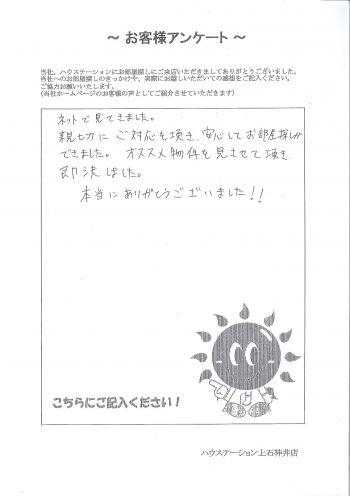 ～ お客様アンケート ～
当社、ハウステーションにお部屋探しにご来店いただきましてありがとうございました。
当社へのお部屋探しのきっかけや、実際にお越しいただいての感想をご記入ください。
ご協力お願いいたします。
(当社ホームページのお客様の声としてご紹介させていただきます)
ネットで見てきました。
親切にご対応を頂き、安心してお部屋探しが
できました。オススメ物件を見させて頂き、
即決しました。
本当にありがとうございました!!
こちらにご記入ください!
ハウステーション上石神井店